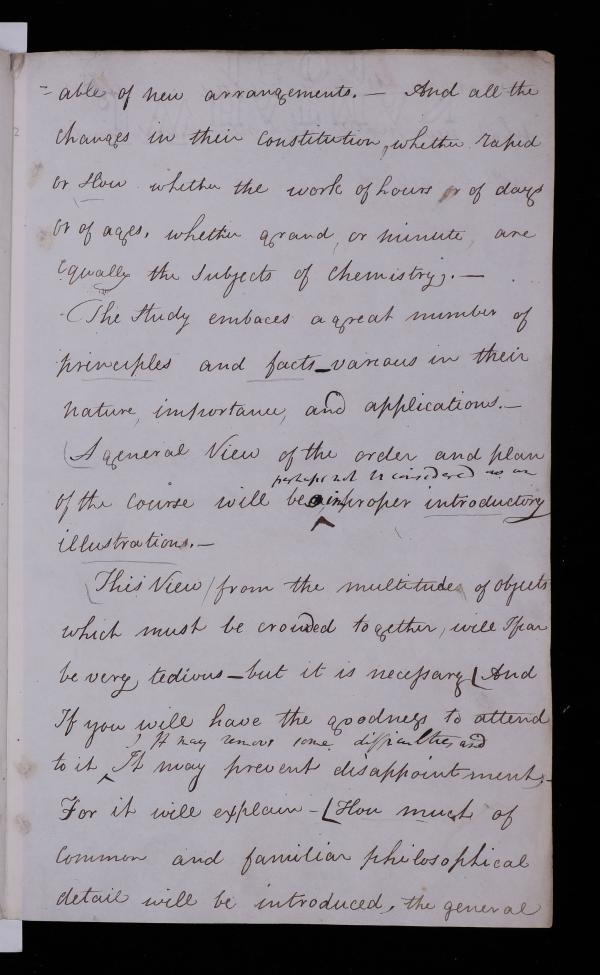 =able of new arrangements. — And all the
changes in their constitution, whether rapid
or slow whether the work of hours or of days
or of ages, whether grand, or minute, are
equally the subjects of chemistry. —
The study embaces a great number of
principles and facts – various in their
nature, importance, and applications. —
(A general View of the order and plan
perhaps not be considered as an
of the course will be improper introductory
illustrations. —
(This View / from the multitude of objects
which must be crowded together, will I fear
be very tedious – but it is necessary [And
If you will have the goodness to attend
, It may remove some difficulties and
to it It may prevent disappointment, –
For it will explain – [How much of
common and familiar philosophical
detail will be introduced, the general